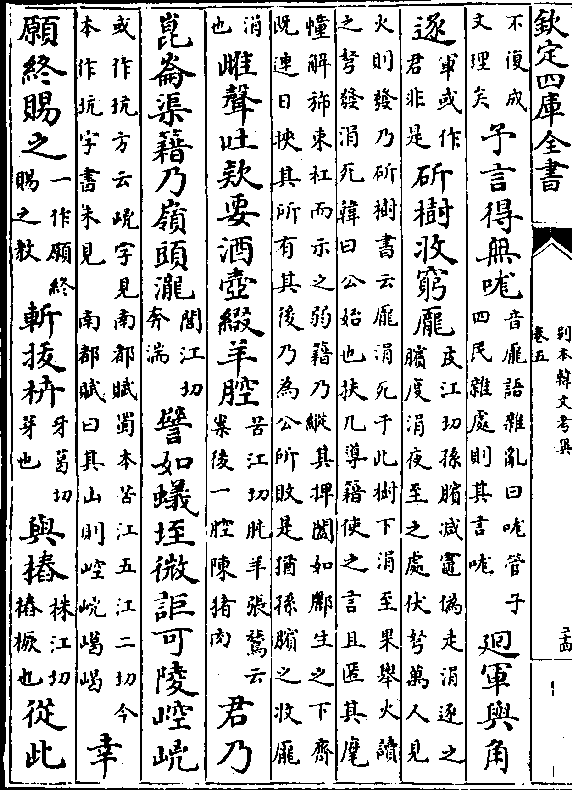 欽定四庫全書
別本韓文考異
卷五
二十四
不復成文理矣予言得無哤音龎語雜亂曰哤管子四民雜處則其言哤廻軍與角
逐軍或作君非是斫樹收窮龎皮江切孫臏减竈偽走涓逐之臏度涓夜至之處伏弩萬人見
火則發乃斫樹書云龎涓死于此樹下涓至果舉火讀
之弩發涓死韓曰公始也扶几導籍使之言且匿其麾
幢解斾束杠而示之弱籍乃縱其捭闔如酈生之下齊
既連日挾其所有其後乃為公所敗是猶孫臏之收龎
涓也雌聲吐欵要酒壺綴羊腔苦江切肫羊張鷟云案後一腔陳猪肉君乃
崑崙渠籍乃嶺頭瀧閭江切奔湍譬如蟻垤微詎可陵崆㟅
或作㟅方云㟅字見南都賦蜀本苦江五江二切今本作㟅字書未見南都賦曰其山則崆㟅嶱嵑幸
願終賜之一作願終賜之教斬拔枿牙葛切芽也與樁株江切樁橛也從此